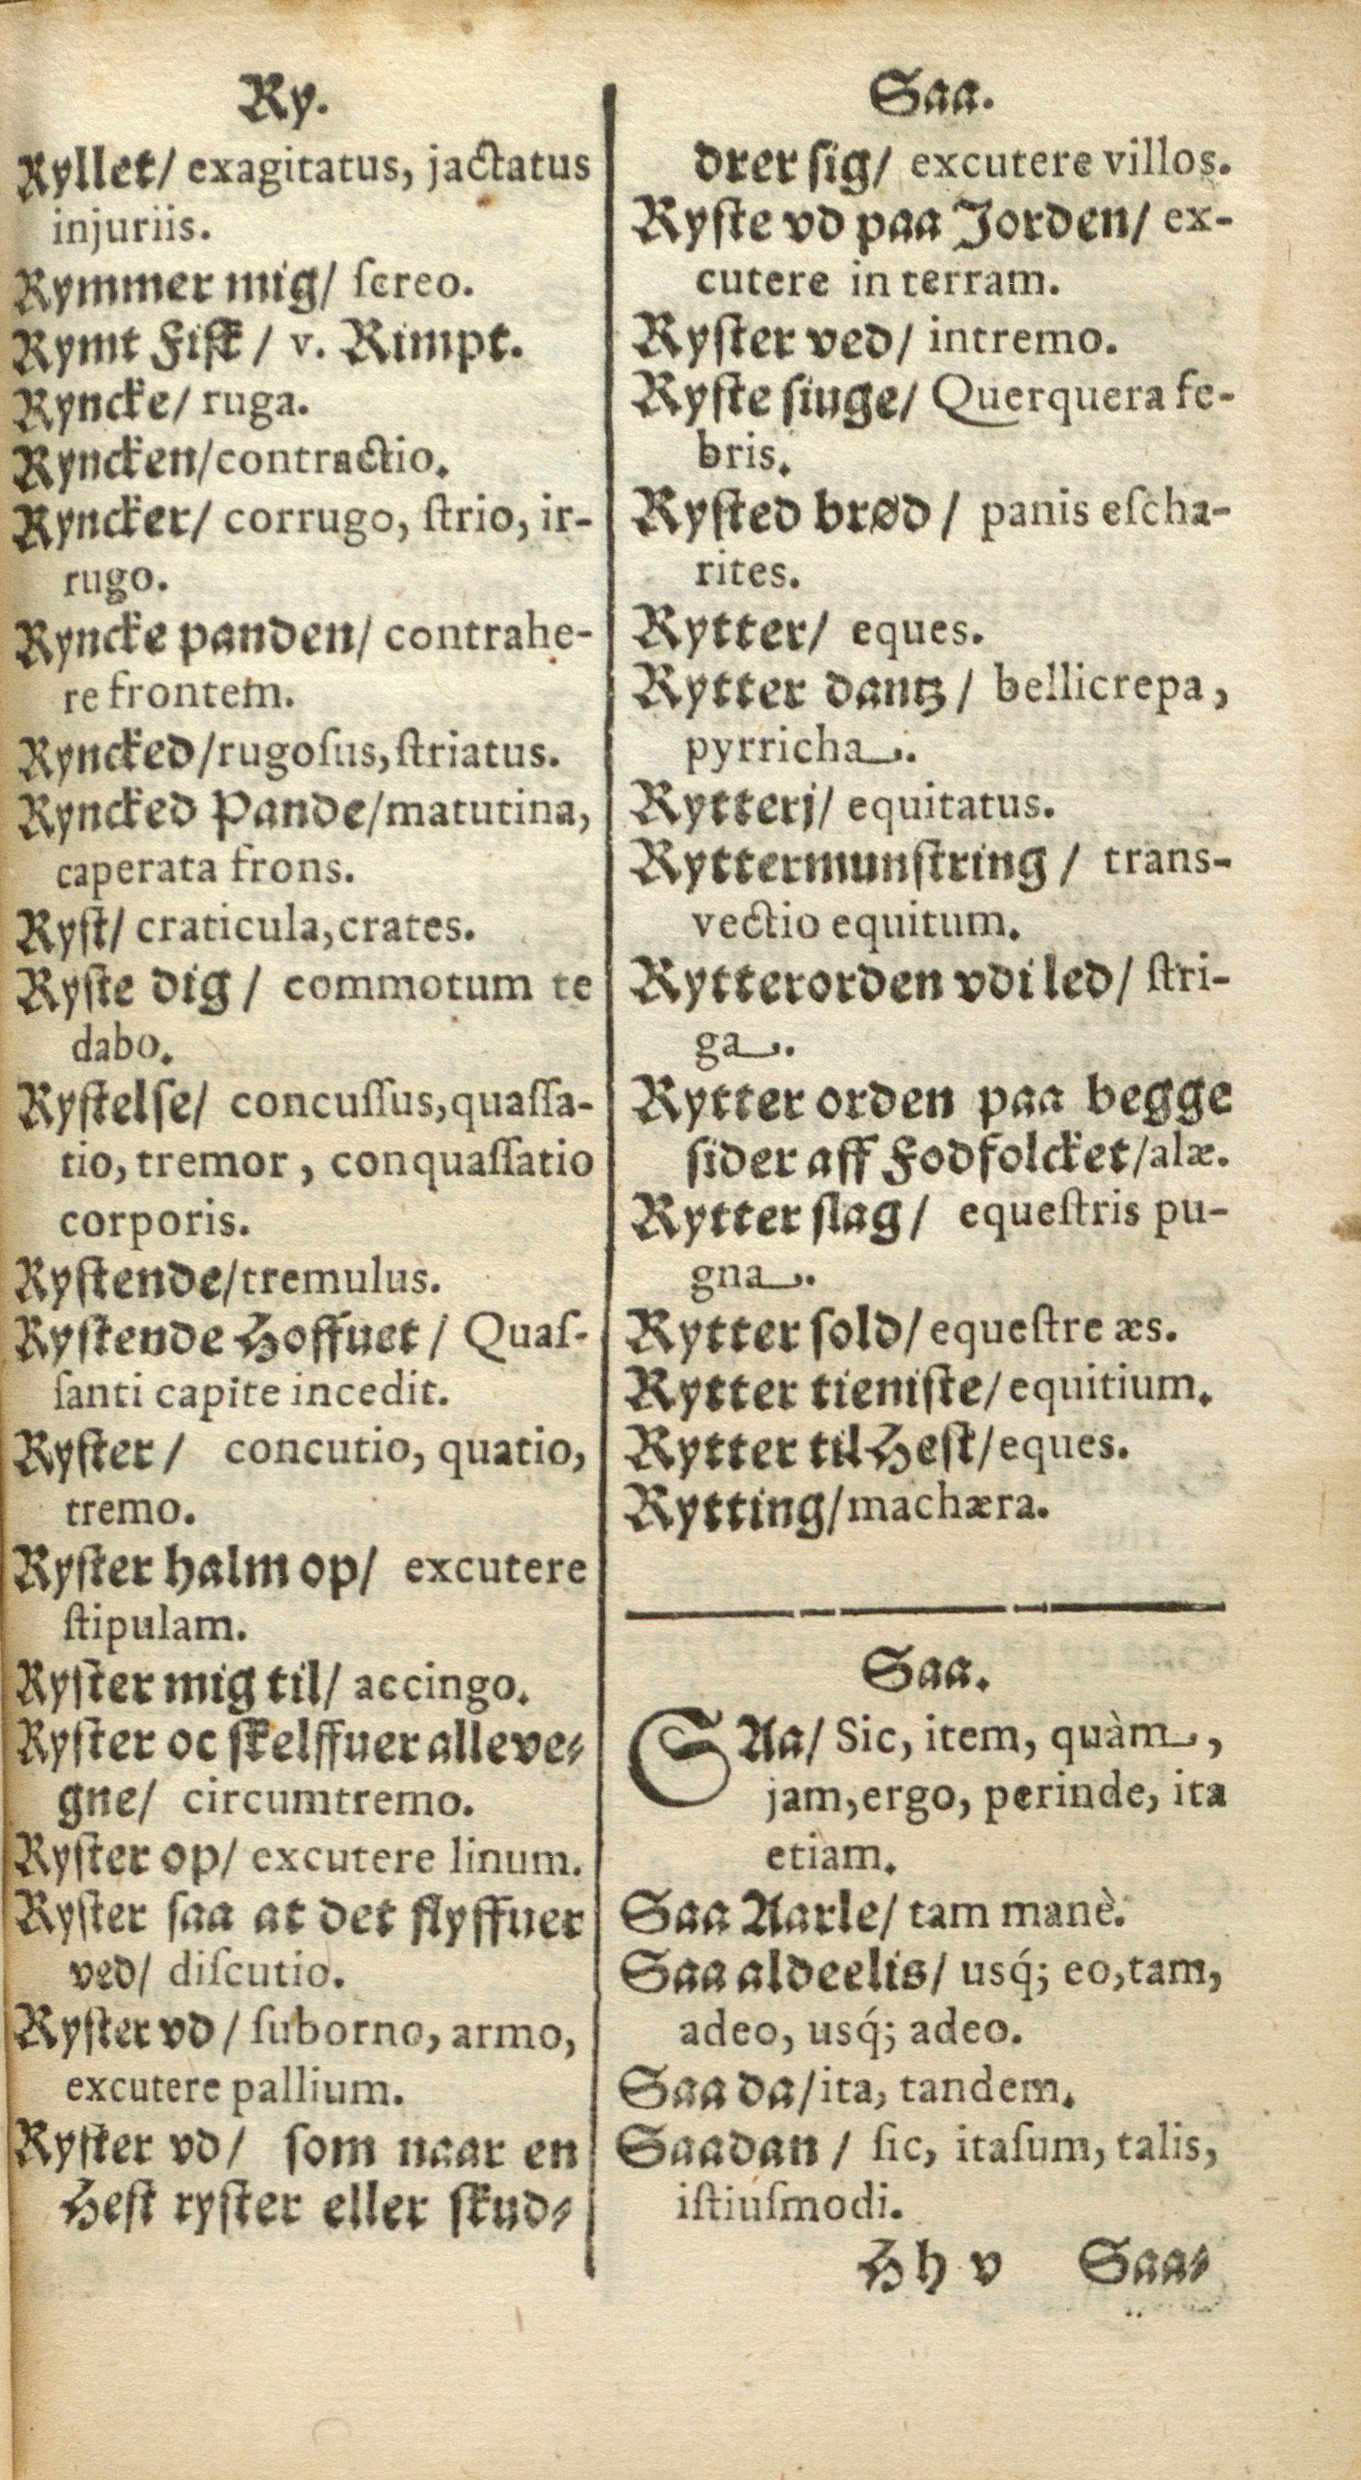 Ry.
Ryllet/ exagitatus, jactatus
injuriis.
Rymmer mig/ ſcreo.
Rymt Fiſk / v. Rimpt.
Ryncke/ ruga.
Ryncken/contractio.
Ryncker/ corrugo, ſtrio, ir-
rugo.
Ryncke panden/ contrahe-
re frontem.
Ryncked/rugoſus, ſtriatus.
Ryncked Pande/matutina,
caperata frons.
Ryſt/ craticula, crates.
Ryſte dig / commotum te
dabo.
Ryſtelſe/ concuſſus, quaſſa-
tio, tremor, conquaſſatio
corporis.
Ryſtende/tremulus.
Ryſtende Hoffuet / Quaſ-
ſanti capite incedit.
Ryſter / concutio, quatio,
tremo.
Ryſter halm op/ excutere
ſtipulam.
Ryſter mig til/ accingo.
Ryſter oc ſkelffuer alleve-
gne/ circumtremo.
Ryſter op/ excutere linum.
Ryſter ſaa at det flyffuer
ved/ diſcutio.
Ryſter vd / ſuborno, armo,
excutere pallium.
Ryſter vd/ ſom naar en
Heſt ryſter eller ſkud-
Saa.
drer ſig/ excutere villos.
Ryſte vd paa Jorden/ ex-
cutere in terram.
Ryſter ved/ intremo.
Ryſte ſiuge/ Querquera fe-
bris.
Ryſted brød / panis eſcha-
rites.
Rytter/ eques.
Rytter dantz / bellicrepa,
pyrricha.
Rytterj/ equitatus.
Ryttermunſtring / trans-
vectio equitum.
Rytterorden vdi led/ ſtri-
ga.
Rytter orden paa begge
ſider aff Fodfolcket/alæ.
Rytter ſlag / equeſtris pu-
gna.
Rytter ſold/ equeſtre æs.
Rytter tieniſte/ equitium.
Rytter til Heſt/eques.
Rytting/machæra.
Saa.
SAa/ Sic, item, quàm,
jam, ergo, perinde, ita
etiam.
Saa Aarle/ tam manè.
Saa aldeelis/ usq́; eo, tam,
adeo, usq́; adeo.
Saa da/ita, tandem.
Saadan / ſic, itaſum, talis,
iſtiuſmodi.
Hh v Saa-